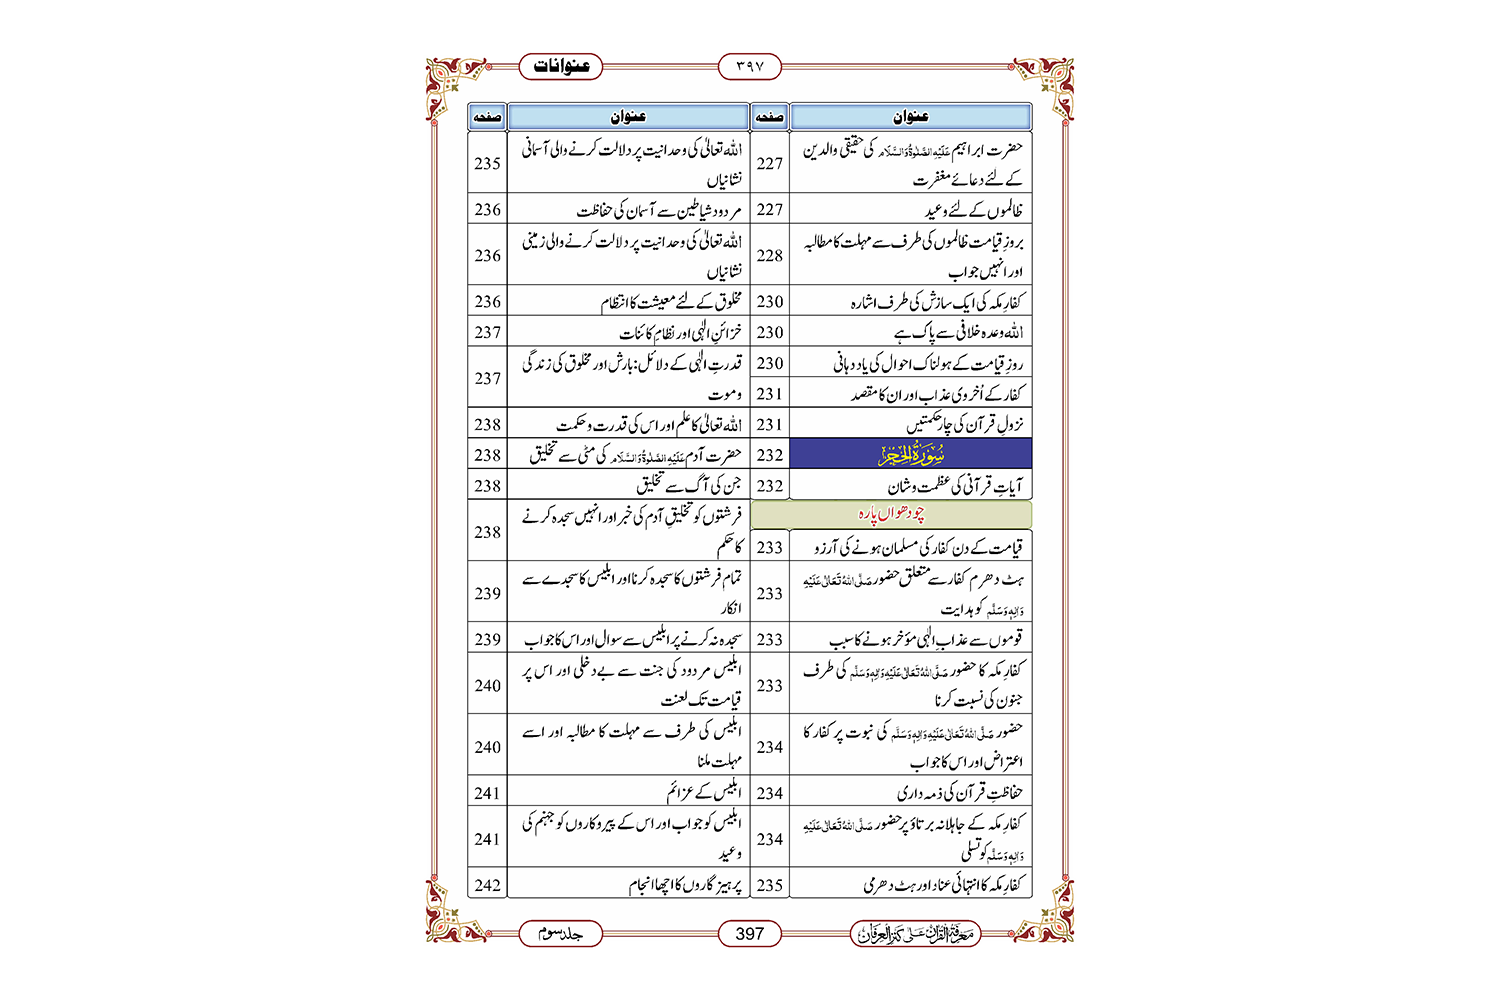 عنوانات
۳۹۷
عنوان
صفحہ
حضرت ابراہیم عَلَیْہِ الصَّلٰوۃُ وَالسَّلَام کی حقیقی والدین
کے لئے دعائے مغفرت
227
ظالموں کے لئے وعید
227
بروزِ قیامت ظالموں کی طرف سے مہلت کا مطالبہ
اور انہیں جواب
228
کفارِ مکہ کی ایک سازش کی طرف اشارہ
230
اللہ وعدہ خلافی سے پاک ہے
230
روزِ قیامت کے ہولناک احوال کی یاد دہانی
230
کفار کے اُخروی عذاب اور ان کا مقصد
231
نزولِ قرآن کی چار حکمتیں
231
سُوْرَۃُ الْحِجْر
232
آیاتِ قرآنی کی عظمت و شان
232
چودھواں پارہ
قیامت کے دن کفار کی مسلمان ہونے کی آرزو
233
ہٹ دھرم کفار سے متعلق حضور صَلَّی اللہُ تَعَالٰی عَلَیْہِ
وَاٰلِہٖ وَسَلَّم کو ہدایت
233
قوموں سے عذابِ الٰہی مؤخر ہونے کا سبب
233
کفارِ مکہ کا حضور صَلَّی اللہُ تَعَالٰی عَلَیْہِ وَاٰلِہٖ وَسَلَّم کی طرف
جنون کی نسبت کرنا
233
حضور صَلَّی اللہُ تَعَالٰی عَلَیْہِ وَاٰلِہٖ وَسَلَّم کی نبوت پر کفار کا
اعتراض اور اس کا جواب
234
حفاظتِ قرآن کی ذمہ داری
234
کفارِ مکہ کے جاہلانہ برتاؤ پر حضور صَلَّی اللہُ تَعَالٰی عَلَیْہِ
وَاٰلِہٖ وَسَلَّم کو تسلی
234
کفارِ مکہ کا انتہائی عناد اور ہٹ دھرمی
235
عنوان
صفحہ
اللہ تعالیٰ کی وحدانیت پر دلالت کرنے والی آسمانی
نشانیاں
235
مردود شیاطین سے آسمان کی حفاظت
236
اللہ تعالیٰ کی وحدانیت پر دلالت کرنے والی زمینی
نشانیاں
236
مخلوق کے لئے معیشت کا انتظام
236
خزائنِ الٰہی اور نظامِ کائنات
237
قدرتِ الٰہی کے دلائل: بارش اور مخلوق کی زندگی
و موت
237
اللہ تعالیٰ کا علم اور اس کی قدرت و حکمت
238
حضرت آدم عَلَیْہِ الصَّلٰوۃُ وَالسَّلَام کی مٹی سے تخلیق
238
جن کی آگ سے تخلیق
238
فرشتوں کو تخلیقِ آدم کی خبر اور انہیں سجدہ کرنے
کا حکم
238
تمام فرشتوں کا سجدہ کرنا اور ابلیس کا سجدے سے
انکار
239
سجدہ نہ کرنے پر ابلیس سے سوال اور اس کا جواب
239
ابلیس مردود کی جنت سے بے دخلی اور اس پر
قیامت تک لعنت
240
ابلیس کی طرف سے مہلت کا مطالبہ اور اسے
مہلت ملنا
240
ابلیس کے عزائم
241
ابلیس کو جواب اور اس کے پیروکاروں کو جہنم کی
وعید
241
پرہیزگاروں کا اچھا انجام
242
معرفۃ القرآن علی کنز العرفان
397
جلد سوم